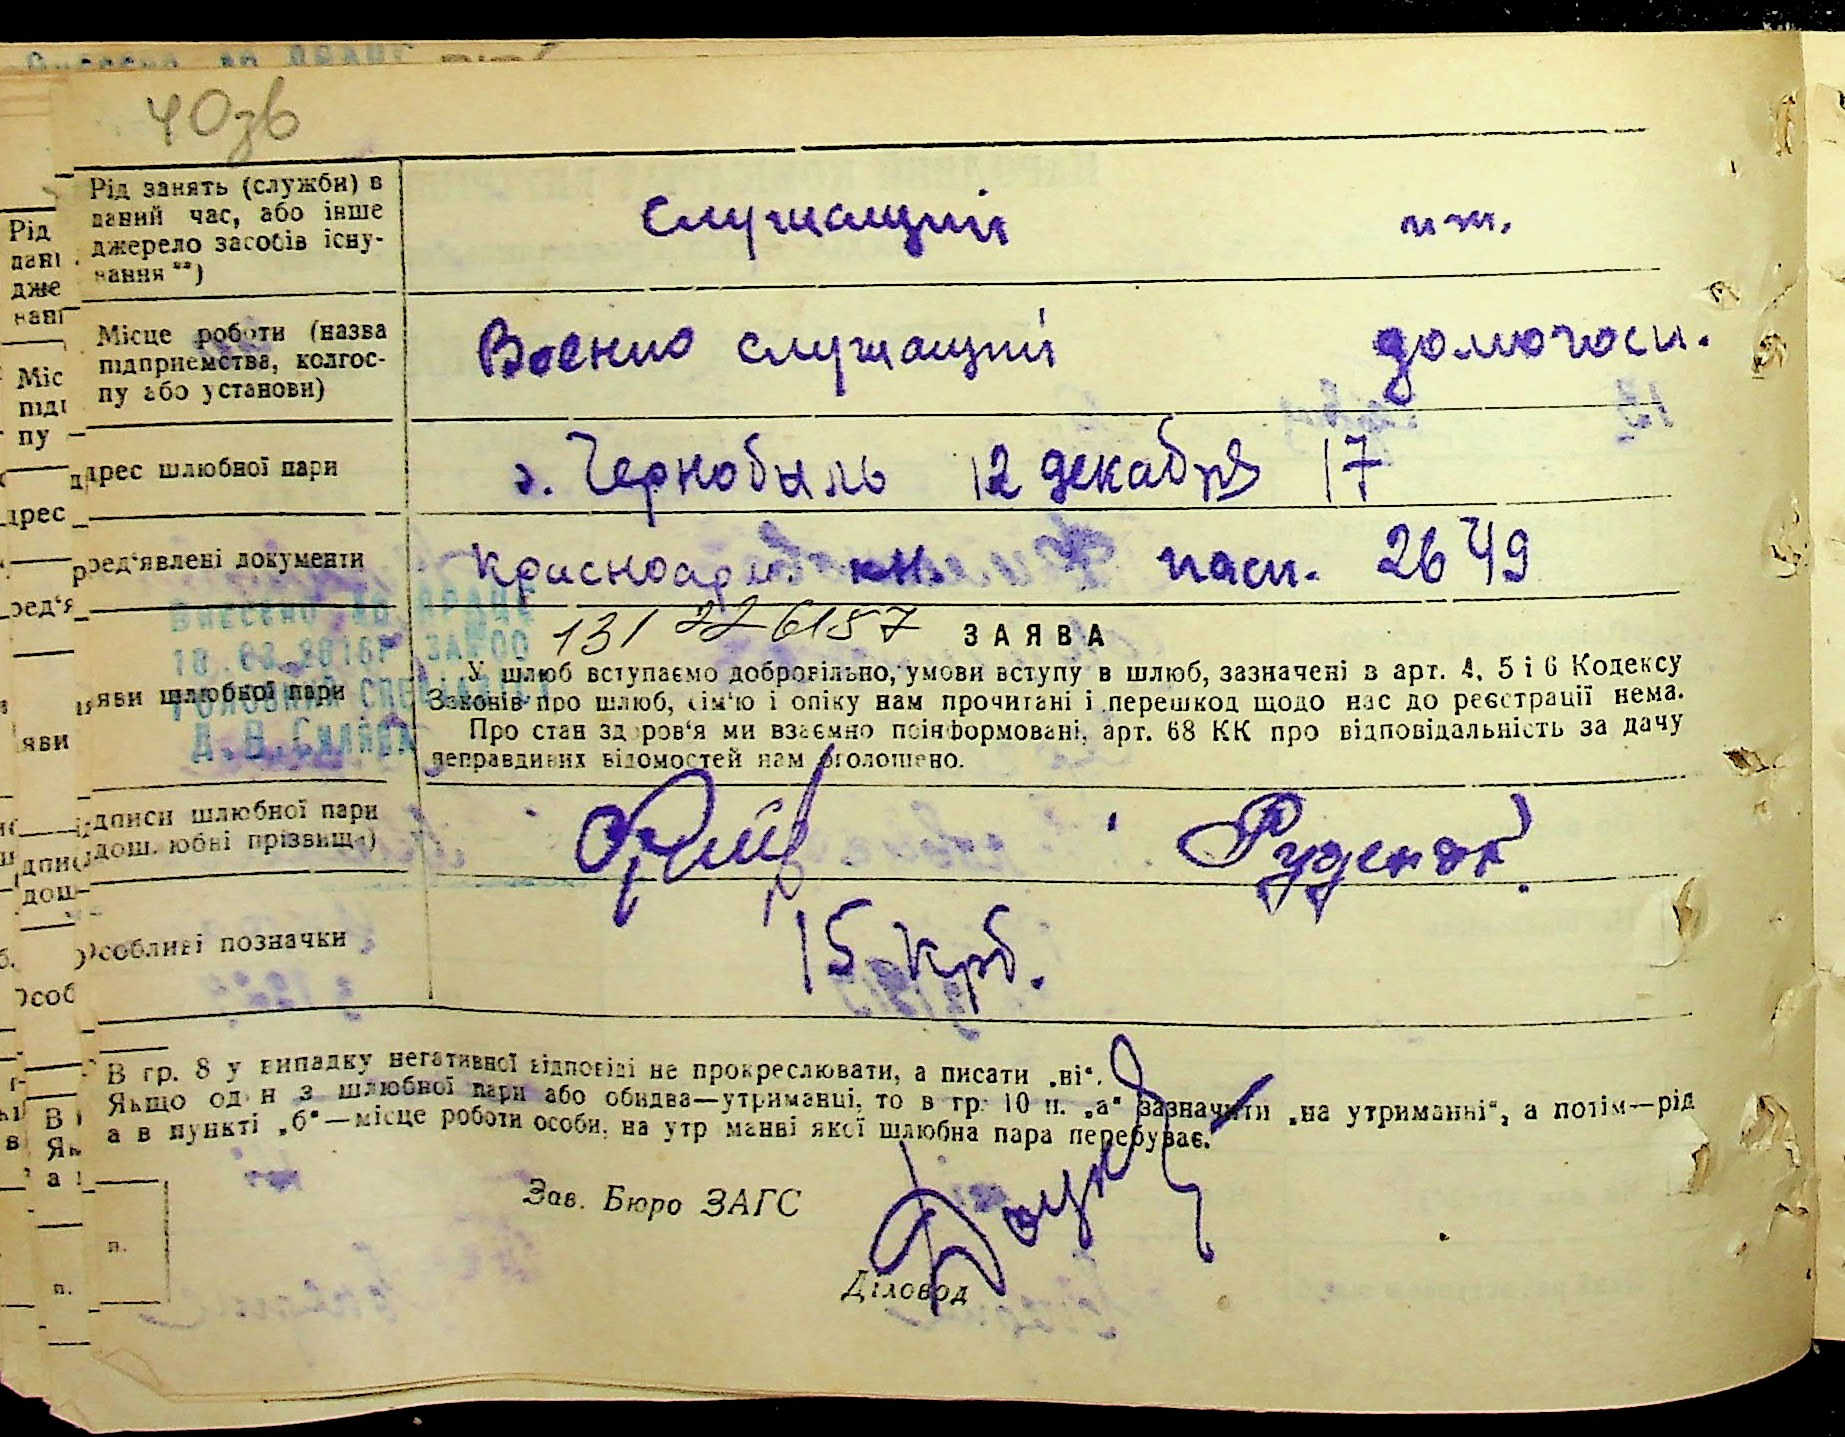 40зв
Рід занять (служби) в
даний час, або інше
джерело засобів існу-
вання **)
Служащий
иж.
Місце роботи (назва
підприємства, колгос-
пу або установи)
Военно служащий
домохоз.
дрес шлюбної пари
г. Чернобыль 12 декабря 17
ред'явлені документи
Красноарм. кн. пасп. 2649
131 226157
ЗАЯВА
яви шлюбної пари
У шлюб вступаємо добровільно, умови вступу в шлюб, зазначені в арт. 4, 5 і 6 Кодексу
Законів про шлюб, сім'ю і опіку нам прочитані і перешкод щодо нас до реєстрації нема.
Про стан здоров'я ми взаємно поінформовані, арт. 68 КК про відповідальність за дачу
неправдивих відомостей нам оголошено.
ВНЕСЕНО ДО ДРАЦС
ГОЛОВНИЙ СПЕЦІАЛІСТ
дписи шлюбної пари
(дошлюбні прізвища)
Руденок
Особливі позначки
15 крб.
В гр. 8 у випадку негативної відповіді не прокреслювати, а писати „ні“.
Якщо один з шлюбної пари або обидва—утриманці, то в гр. 10 п. „а“ зазначити „на утриманні“, а потім—рід
а в пункті „б“—місце роботи особи, на утриманні якої шлюбна пара перебуває.
Зав. Бюро ЗАГС
Діловод
п.